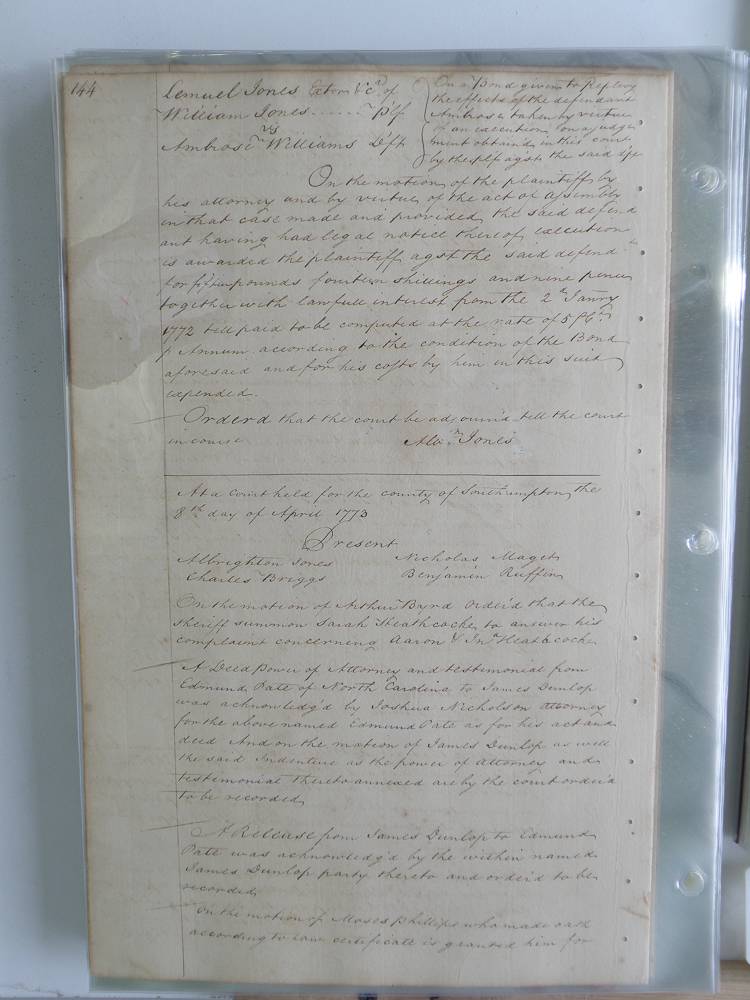 144
Lemuel Jones Exton &ca. of
William Jones ...... Plf
vs
Ambrose Williams Deft
On a Bond given to Replevy
the effects of the defendant
Ambrose taken by virtue
of an execution on a judge
ment obtaind in this court
by the plf agst the said
On the motion of the plaintiff by
his attorney and by virtue of the act of assembly
in that case made and provided the said defend
ant having had legal notice thereof execution
is awarded the plaintiff agst the said defendt
for pounds fourteen shillings and nine pence
together with lawfull interest from the 2d Janry
1772 till paid to be computed at the rate of 5
P Annum according to the condition of the Bond
aforesaid and for his costs by him in this suit
expended.
Orderd that the court be adjournd till the court
in course
Albn Jones
At a Court held for the county of Southampton the
8th day of April 1773
Present
Albrighton Jones Nicholas Maget
Charles Briggs Benjamin Ruffin
On the motion of Arthur Byrd Order'd that the
Sheriff summon Sarah Heathcocke to answer his
complaint concerning Aaron & Jno Heathcocke
A Deed Power of Attorney and testimonial from
Edmund Pate of North Carolina to James Dunlop
was acknowledg'd by Joshua Nicholson attorney
for the above named Edmund Pate as for his act and
deed And on the motion of James Dunlop as well
the said Indenture as the power of attorney and
testimonial thereto annexed are by the court order'd
to be recorded
A Release from James Dunlop to Edmund
Pate was acknowledg'd by the within named
James Dunlop party thereto and order'd to be
recorded
On the motion of Moses Phillips who made oath
according to law certificate is granted him for